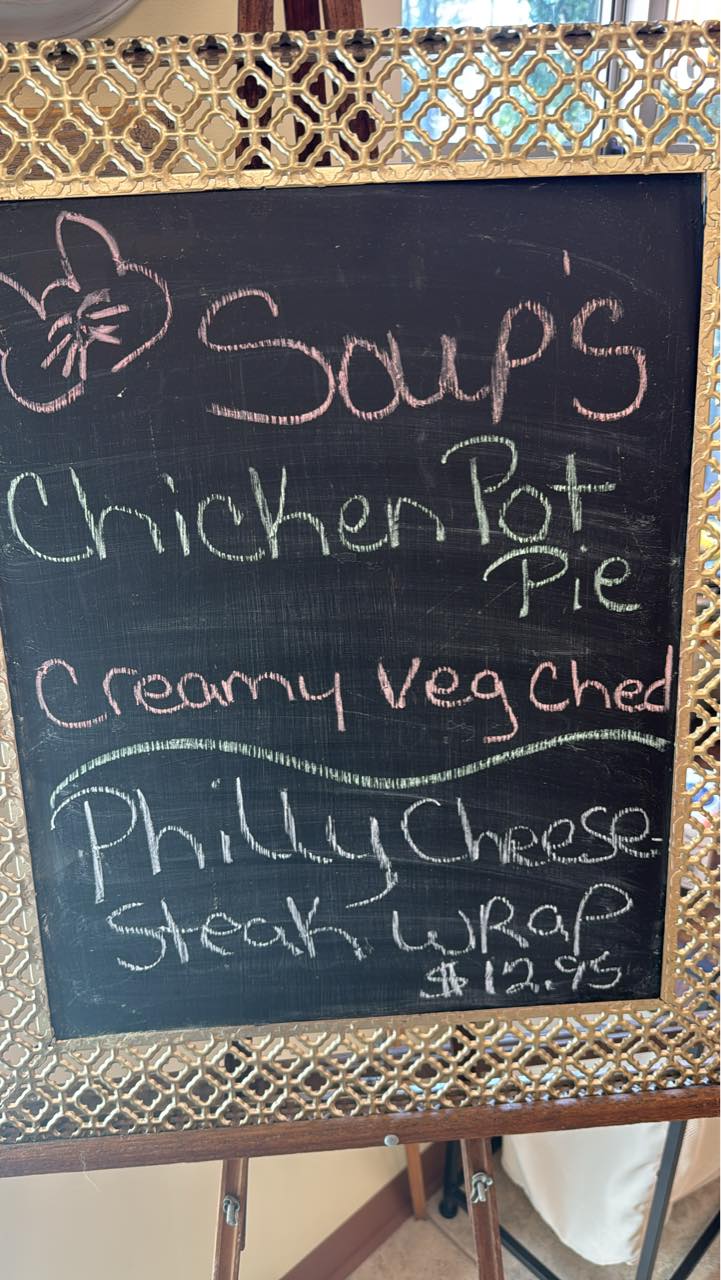 Soup's
Chicken Pot
Pie
Creamy Veg Ched
Philly Cheese-
Steak WRaP
$12.95